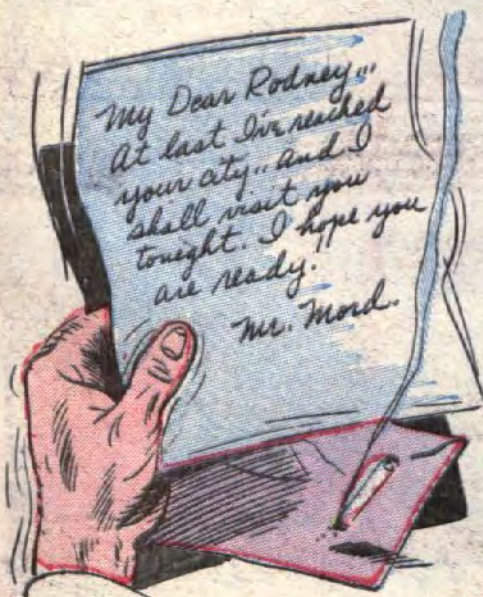 My Dear Rodney...
At last I've reached
your city.. and I
shall visit you
tonight. I hope you
are ready!
Mr. Mord.